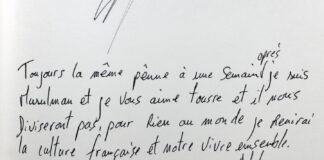 après
Toujours la même pênne à une Semaine je suis
Musulman et je vous aime tousse et il nous
Diviseront pas, pour Rien au monde je Renirai
la culture française et notre vivre ensemble.